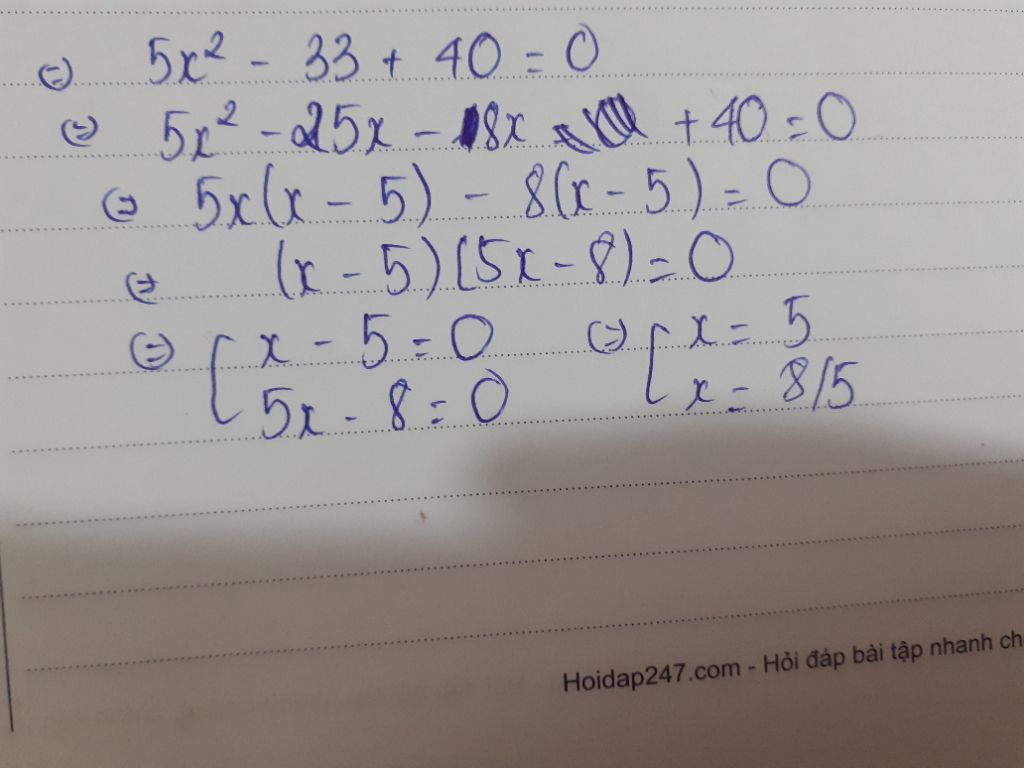 ⇔ 5x² - 33 + 40 = 0
⇔ 5x² - 25x - 8x + 40 = 0
⇔ 5x(x - 5) - 8(x - 5) = 0
⇔ (x - 5)(5x - 8) = 0
⇔ [ x - 5 = 0 ⇔ [ x = 5
5x - 8 = 0 x = 8/5
Hoidap247.com - Hỏi đáp bài tập nhanh ch